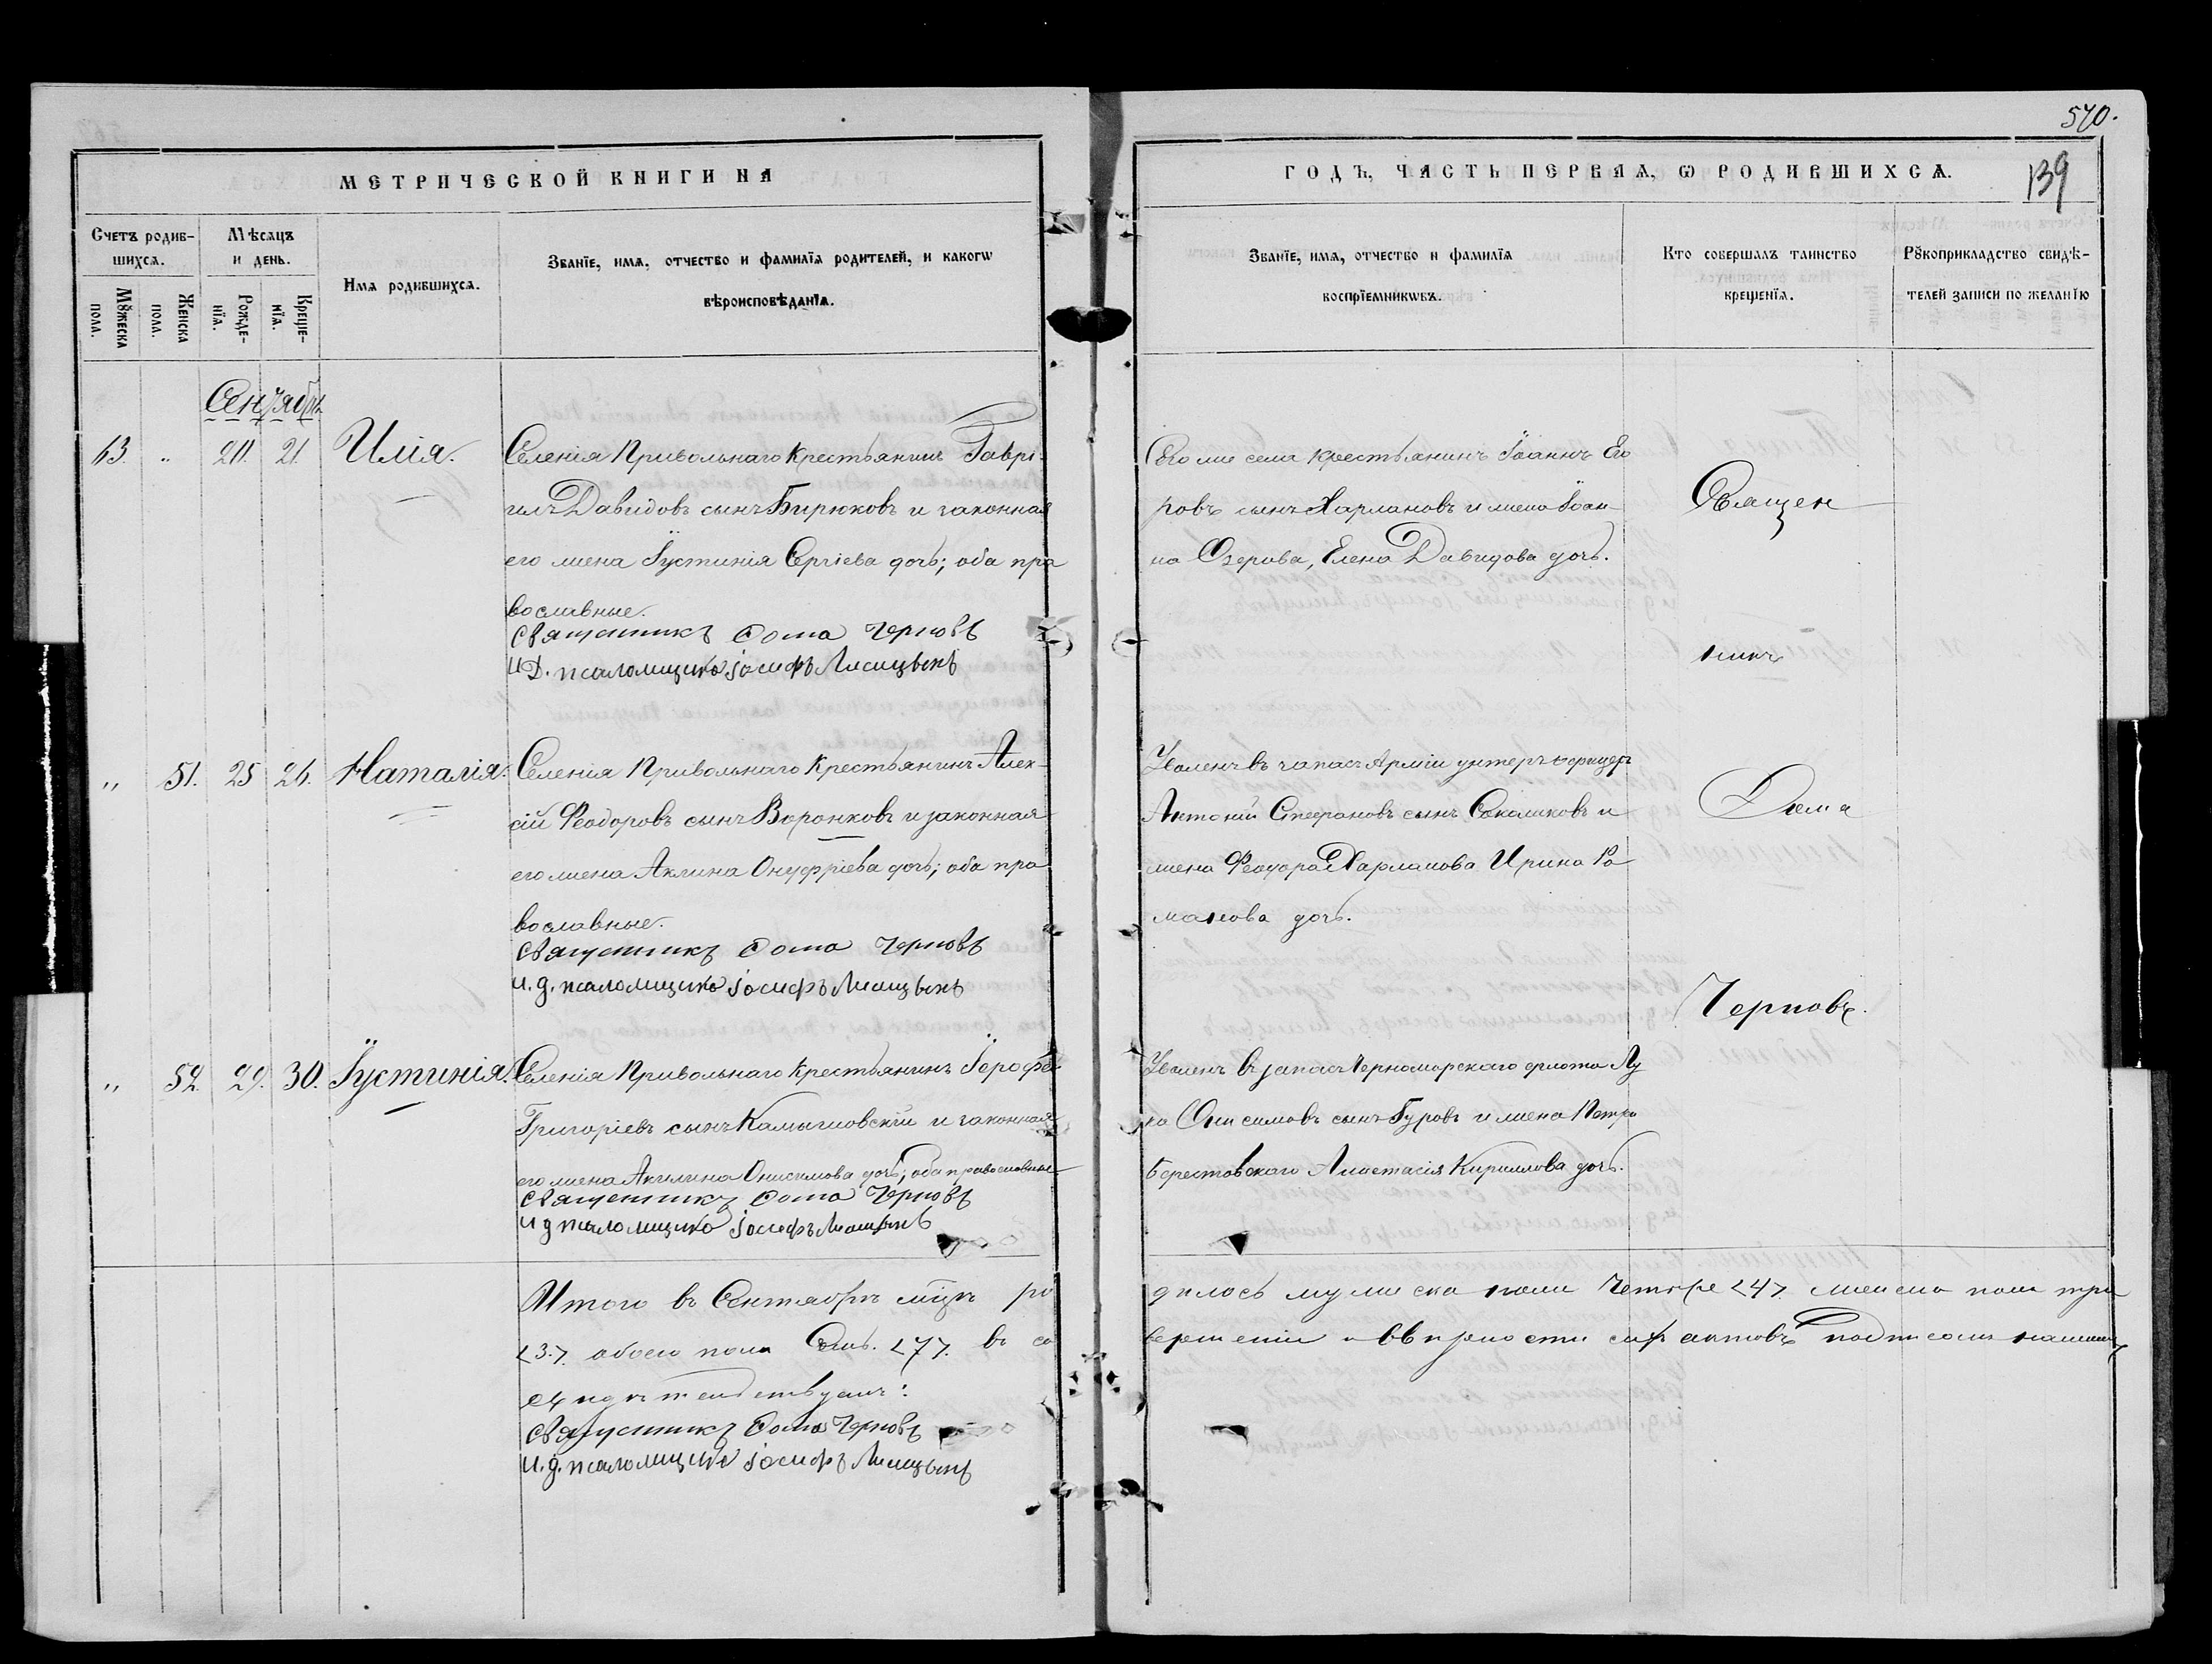 570.
139
МЕТРИЧЕСКОЙ КНИГИ НА
ГОДЪ, ЧАСТЬ ПЕРВАѦ, Ѡ РОДИВШИХСѦ.
Счетъ родив-
шихсѧ.
Мѣсѧцъ
и день.
Мꙋжеска
пола.
Женска
пола.
Рожде-
нїѧ.
Креще-
нїѧ.
Имѧ родившихсѧ.
Званїе, имѧ, отчество и фамилїѧ родителей, и какогѡ
вѣроисповѣданїѧ.
Званїе, имѧ, отчество и фамилїѧ
воспрїемникѡвъ.
Кто совершалъ таинство
крещенїѧ.
Рꙋкоприкладство свидѣ-
телей записи по желанїю
Сентябрь
63. " 20. 21. Илія.
Селенія Привольнаго крестьянинъ Гаврі-
илъ Давидовъ сынъ Бирюковъ и законная
его жена Іустинія Сергіева дочь; оба пра
вославные.
Священникъ Фома Черновъ
И.Д. псаломщика Іосифъ Лисицынъ
Того же села крестьянинъ Іоаннъ Его
ровъ сынъ Харлановъ и жена Іоан-
на Озерова, Елена Давидова дочь.
" 51. 25 26. Наталія.
Селенія Привольнаго крестьянинъ Алек-
сій Феодоровъ сынъ Воронковъ и законная
его жена Акилина Онуфріева дочь; оба пра
вославные.
Священникъ Фома Черновъ
и.д. псаломщика Іосифъ Лисицынъ
Уволенъ въ запасъ Арміи унтеръ офицеръ
Антоній Стефановъ сынъ и
жена Феодора Харланова Ирина Ро
манова дочь.
" 52. 29. 30. Іустинія.
Селенія Привольнаго крестьянинъ Іерофей
Григоріевъ сынъ Камышовскій и законная
его жена Акилина Онисимова дочь; оба православные
Священникъ Фома Черновъ
и д псаломщика Іосифъ Лисицынъ
Уволенъ въ запасъ Черноморскаго флота Лу
ка Онисимовъ сынъ Гуровъ и жена Петра
Берестовскаго Анастасія Кириллова дочь.
Священ
никъ
Фома
Черновъ.
Итого въ Сентябрѣ мцѣ ро
дилось мужеска пола четыре <4> женска пола три
<3.> обоего пола Семь. <7>. въ со
вершеніи и вѣрности сихъ актовъ подписомъ нашимъ
свидѣтельствуемъ:
Священникъ Фома Черновъ
И.д. псаломщика Іосифъ Лисицынъ